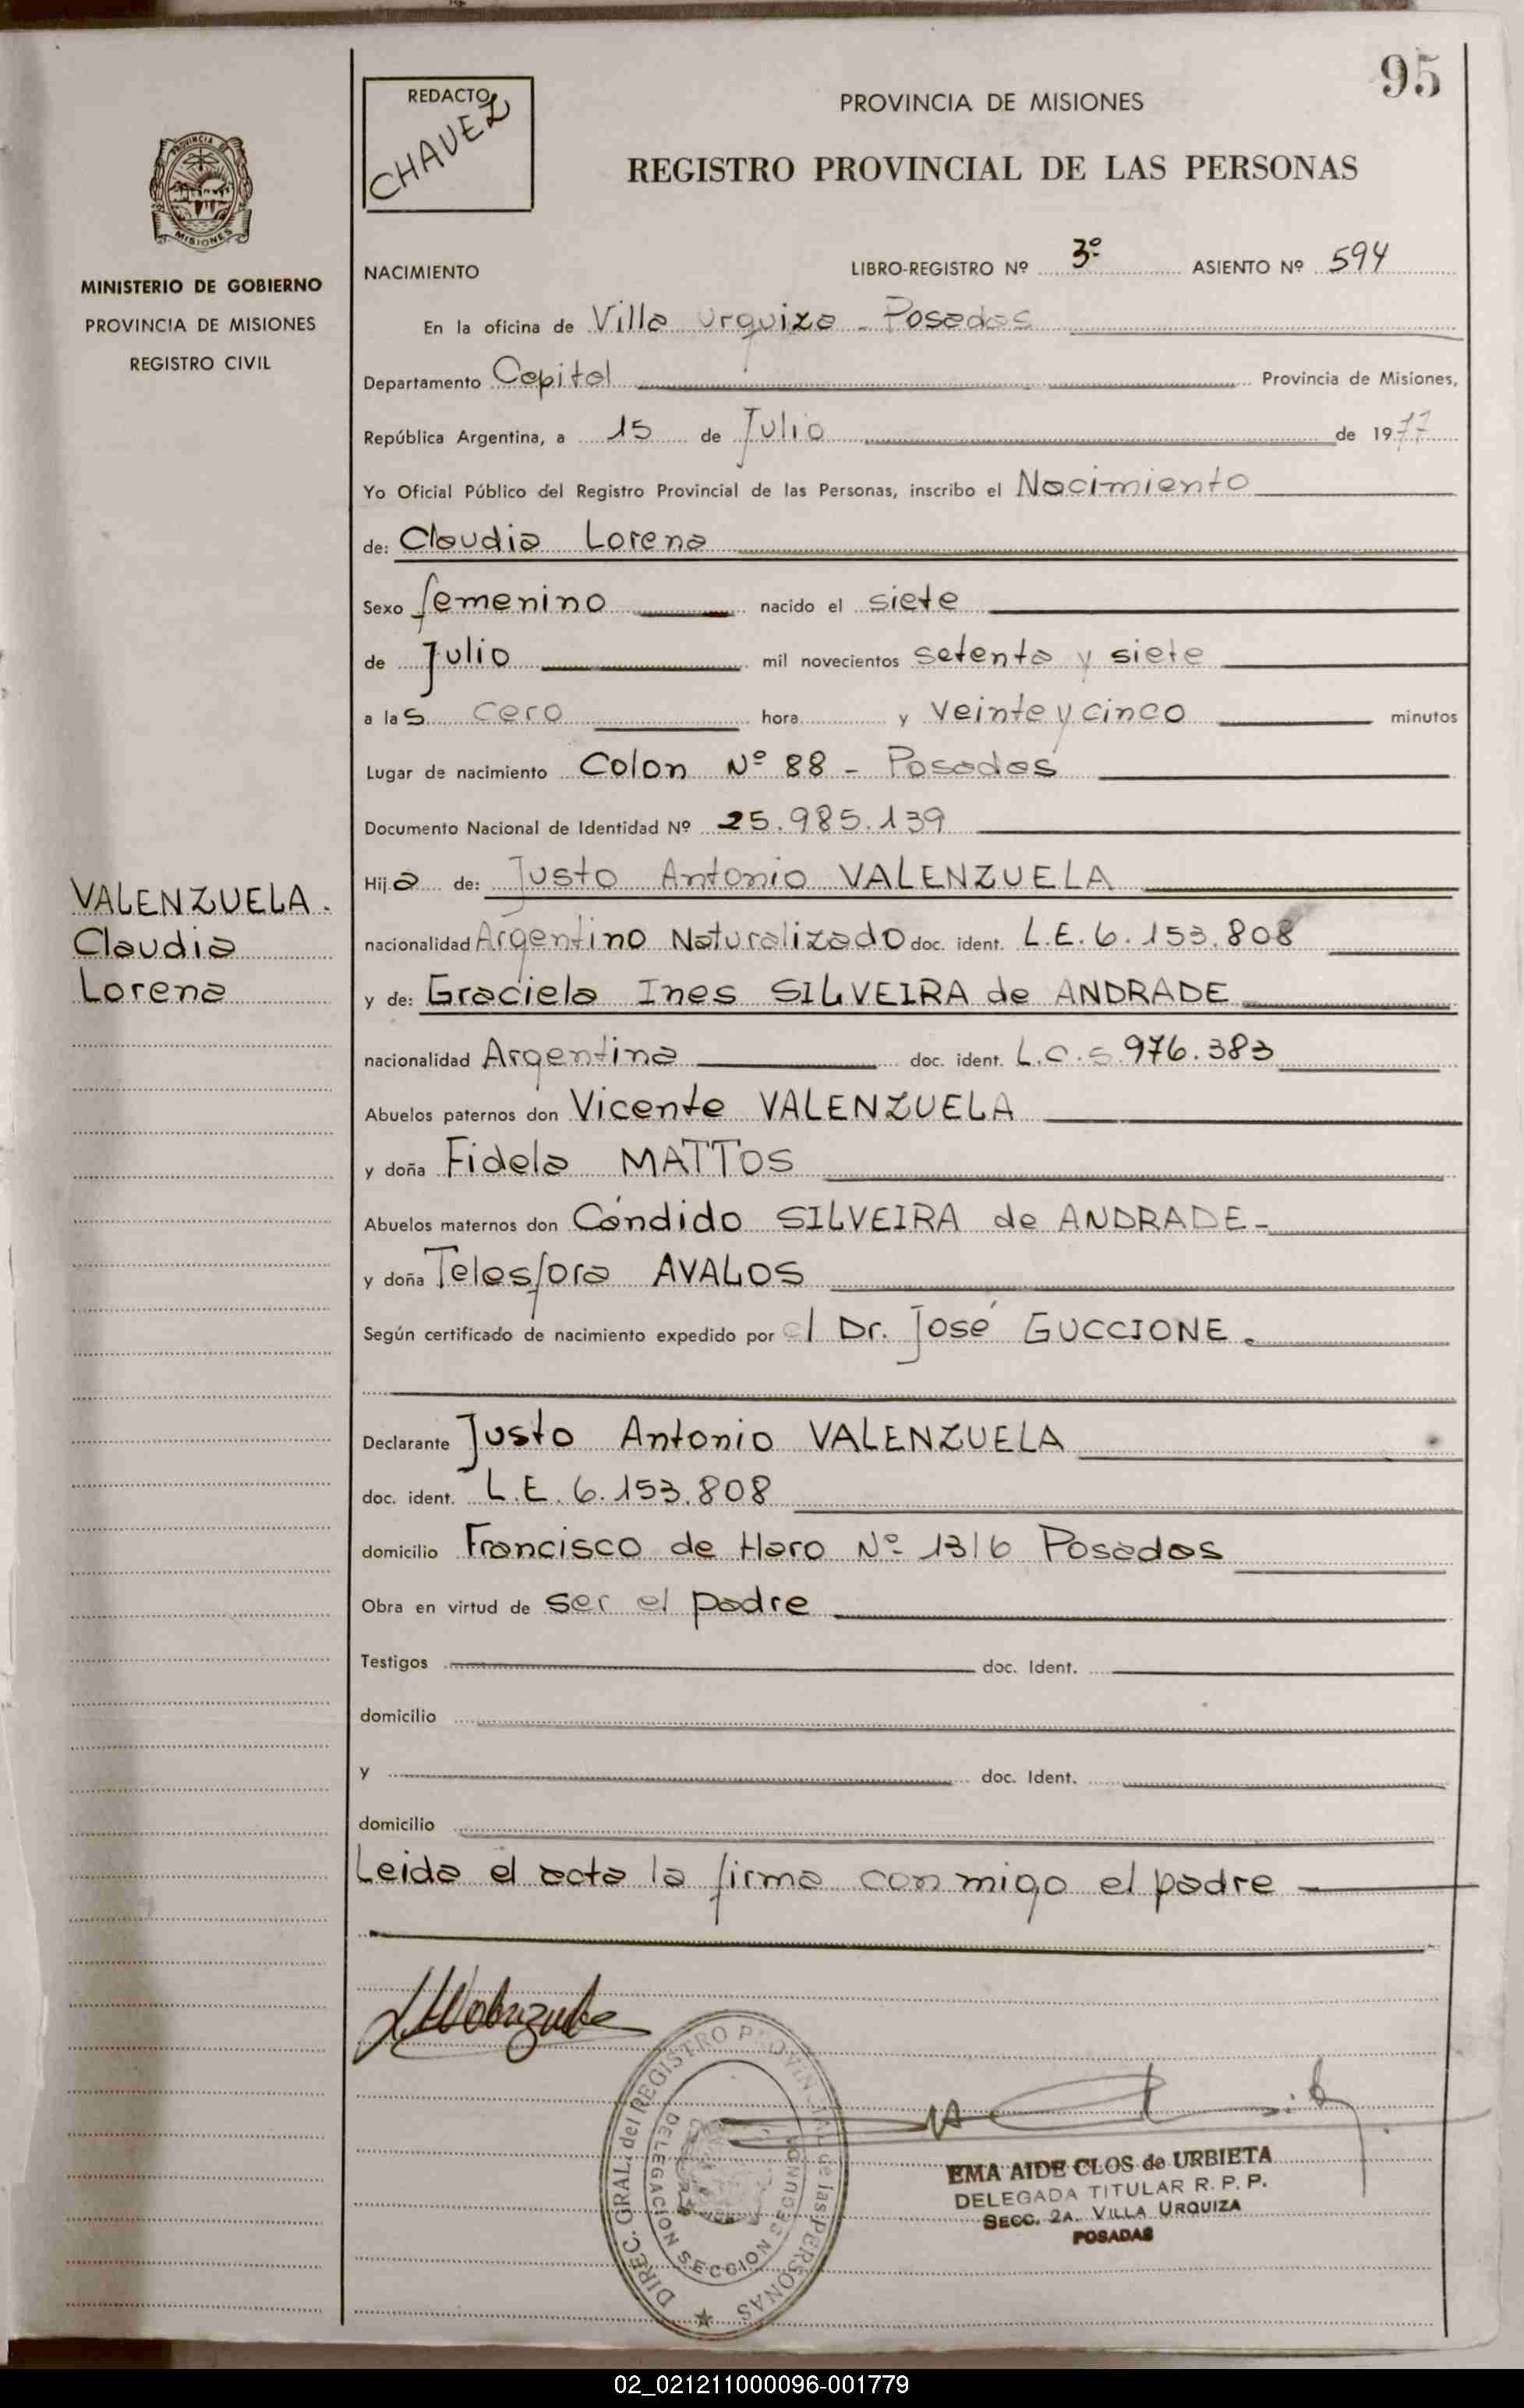 95
REDACTO
CHAVEZ
PROVINCIA DE MISIONES
REGISTRO PROVINCIAL DE LAS PERSONAS
PROVINCIA DE
MISIONES
MINISTERIO DE GOBIERNO
PROVINCIA DE MISIONES
REGISTRO CIVIL
NACIMIENTO LIBRO-REGISTRO Nº 3º ASIENTO Nº 594
En la oficina de Villa Urquiza - Posadas
Departamento Capital Provincia de Misiones,
República Argentina, a 15 de Julio de 1977
Yo Oficial Público del Registro Provincial de las Personas, inscribo el Nacimiento
de: Claudia Lorena
Sexo femenino nacido el siete
de Julio mil novecientos setenta y siete
a las cero hora y veinte y cinco minutos
Lugar de nacimiento Colon Nº 88 - Posadas
Documento Nacional de Identidad Nº 25.985.139
Hija de: Justo Antonio VALENZUELA
VALENZUELA.
Claudia
Lorena
nacionalidad Argentino Naturalizado doc. ident. L.E. 6.153.808
y de: Graciela Ines SILVEIRA de ANDRADE
nacionalidad Argentina doc. ident. L.C. 5.976.383
Abuelos paternos don Vicente VALENZUELA
y doña Fidela MATTOS
Abuelos maternos don Cándido SILVEIRA de ANDRADE-
y doña Telesfora AVALOS
Según certificado de nacimiento expedido por el Dr. José GUCCIONE.
Declarante Justo Antonio VALENZUELA
doc. ident. L.E. 6.153.808
domicilio Francisco de Haro Nº 1316 Posadas
Obra en virtud de ser el padre
Testigos doc. Ident.
domicilio
y doc. Ident.
domicilio
Leida el acta la firma conmigo el padre
DIREC. GRAL. del REGISTRO PROVINCIAL de las PERSONAS
DELEGACION SECCION SEGUNDA
EMA AIDE CLOS de URBIETA
DELEGADA TITULAR R. P. P.
SECC. 2A. VILLA URQUIZA
POSADAS
02_021211000096-001779